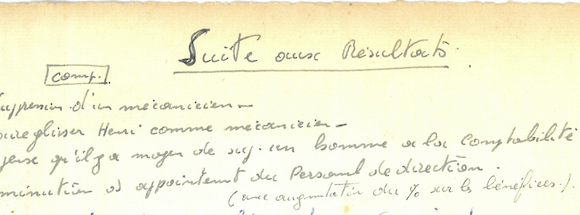 Suite aux Résultats.
comp.
suppression d'un mécanicien —
faire glisser Henri comme mécanicien —
pense qu'il y a moyen de sup. un homme a la comptabilité
diminution des appointements du Personnel de direction.
(avec augmentation du % sur les bénéfices.)